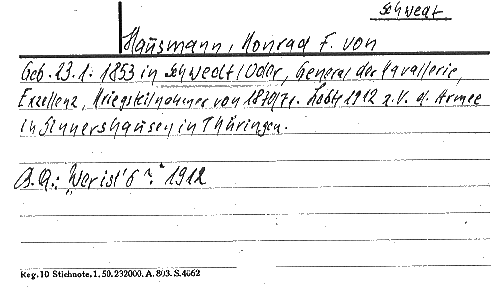 Schwedt.
Hausmann, Konrad F. von
Geb. 23.1.1853 in Schwedt/Oder, General der Kavallerie,
Exzellenz, Kriegsteilnehmer von 1870/71. Lebte 1912 z.V. d. Armee
in Sinnershausen in Thüringen.
B.Q.: "Wer ist's?" 1912
Reg. 10 Stichnote. 1. 50. 232000. A. 803. S. 4062